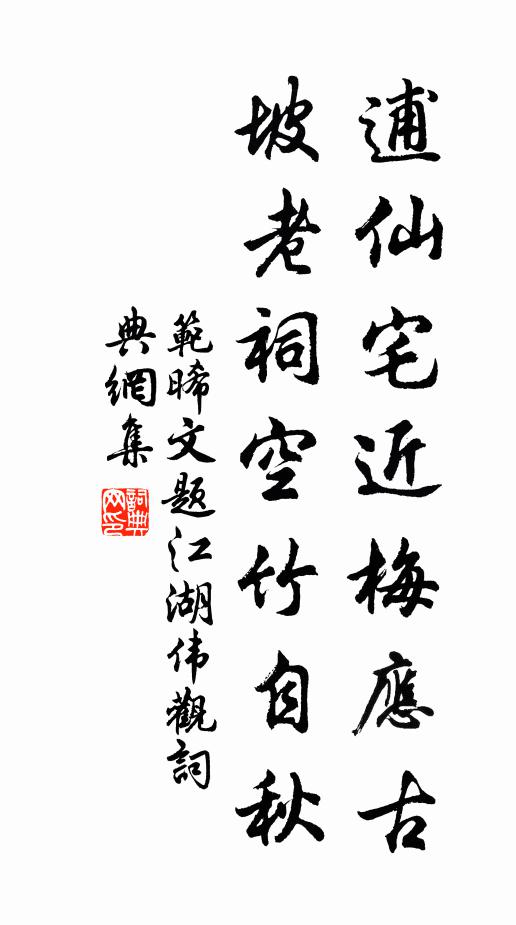 逋仙宅近梅應古
坡老祠空竹自秋
範晞文題江湖伟觀詞
典網集
詞典網印